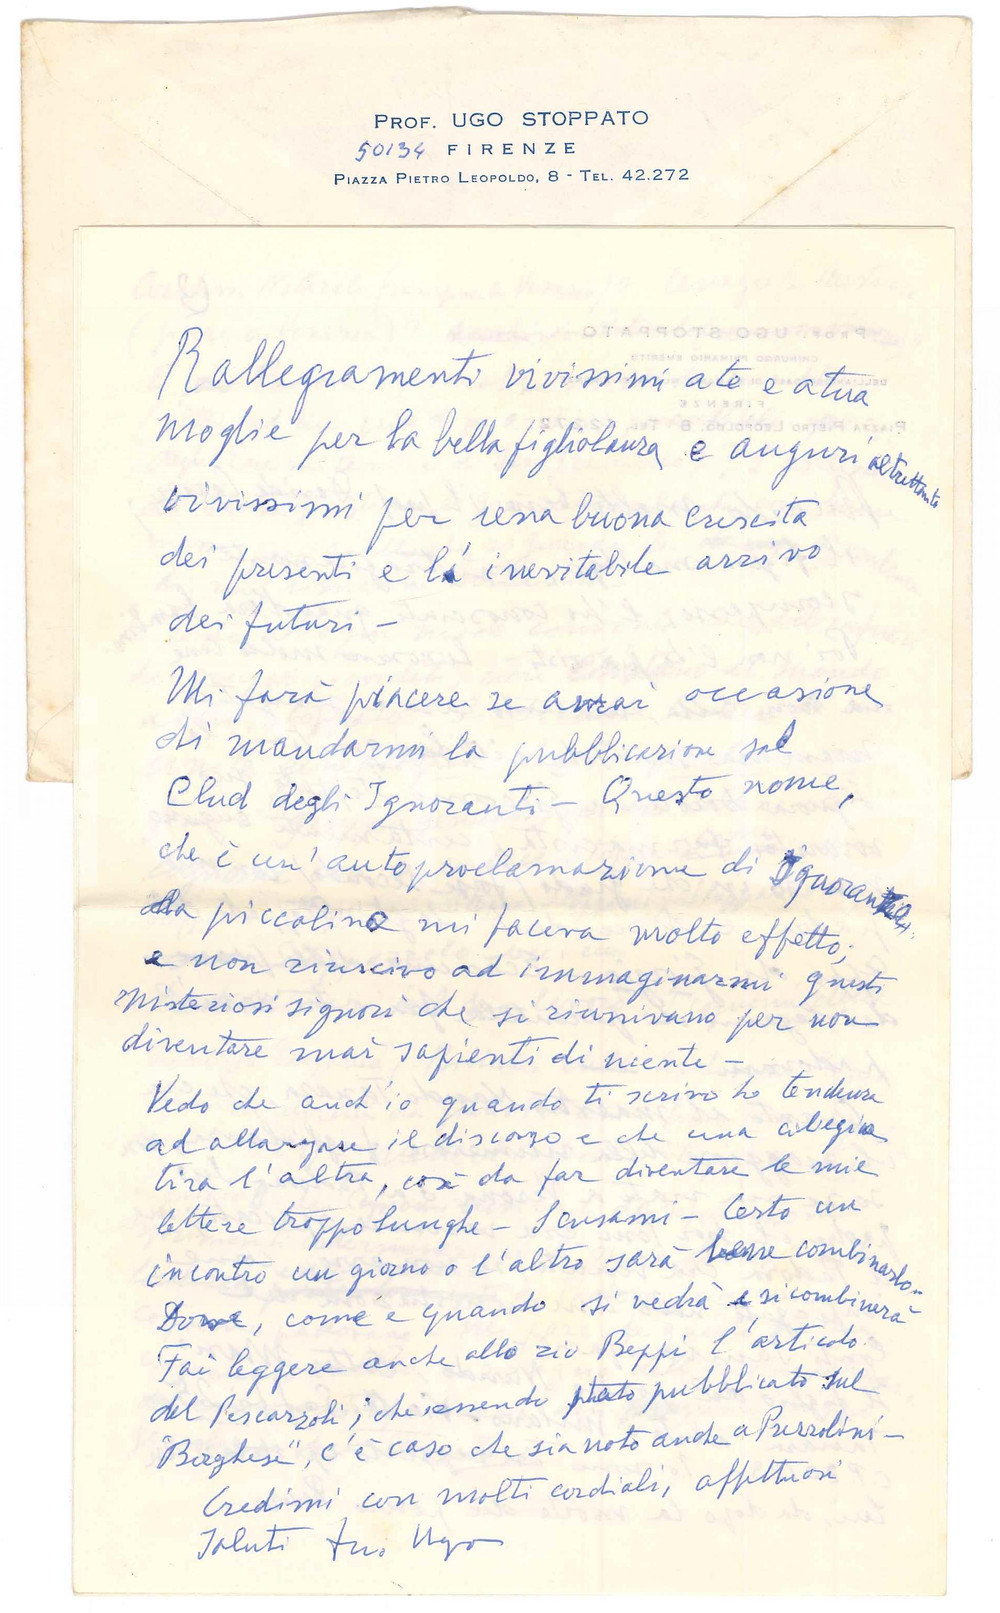 PROF. UGO STOPPATO
50134 FIRENZE
PIAZZA PIETRO LEOPOLDO, 8 - TEL. 42.272
Rallegramenti vivissimi a te e a tua
moglie per la bella figliolanza e auguri altrettanto
vivissimi per una buona crescita
dei presenti e l' inevitabile arrivo
dei futuri -
Mi farà piacere se avrai occasione
di mandarmi la pubblicazione sul
Club degli Ignoranti - Questo nome,
che è un' autoproclamazione di
da piccolino mi faceva molto effetto,
e non riuscivo ad immaginarmi questi
misteriosi signori che si riunivano per non
diventare mai sapienti di niente -
Vedo che anch'io quando ti scrivo ho tendenza
ad allargare il discorso e che una ciliegia
tira l'altra, così da far diventare le mie
lettere troppo lunghe - Scusami - Certo un
incontro un giorno o l'altro sarà bene combinarlo -
Dove, come e quando si vedrà e si combinerà
Fai leggere anche allo zio Beppi l'articolo
del Pescarzoli, che essendo stato pubblicato sul
"Borghese", c'è caso che sia noto anche a Prezzolini -
Credimi con molti cordiali, affettuosi
Saluti tuo Ugo